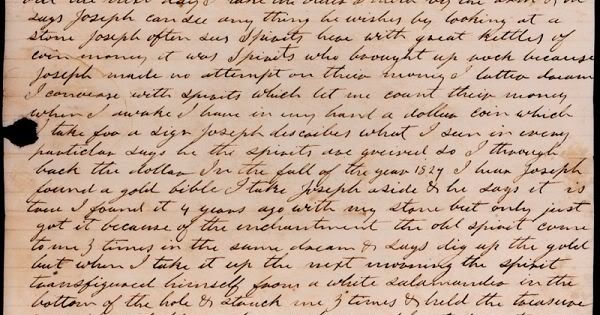 says Joseph can see any thing he wishes by looking at a
stone Joseph often sees Spirits here with great kettles of
coin money it was Spirits who brought up rock because
Joseph made no attempt on their money I latter dream
I converse with spirits which let me count their money
when I awake I have in my hand a dollar coin which
I take for a sign Joseph describes what I seen in every
particlar says he the spirits are greived so I through
back the dollar In the fall of the year 1827 I hear Joseph
found a gold bible I take Joseph aside & he says it is
true I found it 4 years ago with my stone but only just
got it because of the enchantment the old spirit come
to me 3 times in the same dream & says dig up the gold
but when I take it up the next morning the spirit
transfigured himself from a white salamander in the
bottom of the hole & struck me 3 times & held the treasure